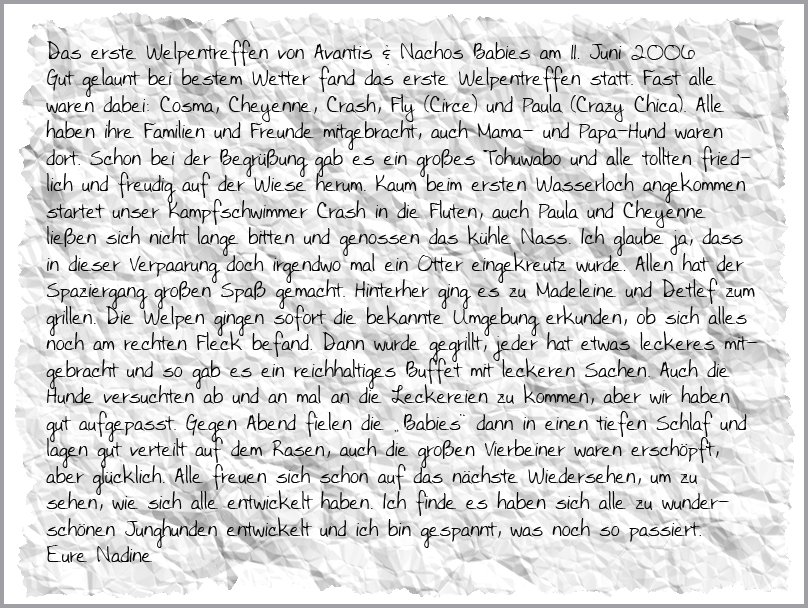 Das erste Welpentreffen von Avantis & Nachos Babies am 11. Juni 2006
Gut gelaunt bei bestem Wetter fand das erste Welpentreffen statt. Fast alle
waren dabei: Cosma, Cheyenne, Crash, Fly (Circe) und Paula (Crazy Chica). Alle
haben ihre Familien und Freunde mitgebracht, auch Mama- und Papa-Hund waren
dort. Schon bei der Begrüßung gab es ein großes Tohuwabo und alle tollten fried-
lich und freudig auf der Wiese herum. Kaum beim ersten Wasserloch angekommen
startet unser Kampfschwimmer Crash in die Fluten, auch Paula und Cheyenne
ließen sich nicht lange bitten und genossen das kühle Nass. Ich glaube ja, dass
in dieser Verpaarung doch irgendwo mal ein Otter eingekreutz wurde. Allen hat der
Spaziergang großen Spaß gemacht. Hinterher ging es zu Madeleine und Detlef zum
grillen. Die Welpen gingen sofort die bekannte Umgebung erkunden, ob sich alles
noch am rechten Fleck befand. Dann wurde gegrillt, jeder hat etwas leckeres mit-
gebracht und so gab es ein reichhaltiges Buffet mit leckeren Sachen. Auch die
Hunde versuchten ab und an mal an die Leckereien zu kommen, aber wir haben
gut aufgepasst. Gegen Abend fielen die „Babies“ dann in einen tiefen Schlaf und
lagen gut verteilt auf dem Rasen, auch die großen Vierbeiner waren erschöpft,
aber glücklich. Alle freuen sich schon auf das nächste Wiedersehen, um zu
sehen, wie sich alle entwickelt haben. Ich finde es haben sich alle zu wunder-
schönen Junghunden entwickelt und ich bin gespannt, was noch so passiert.
Eure Nadine